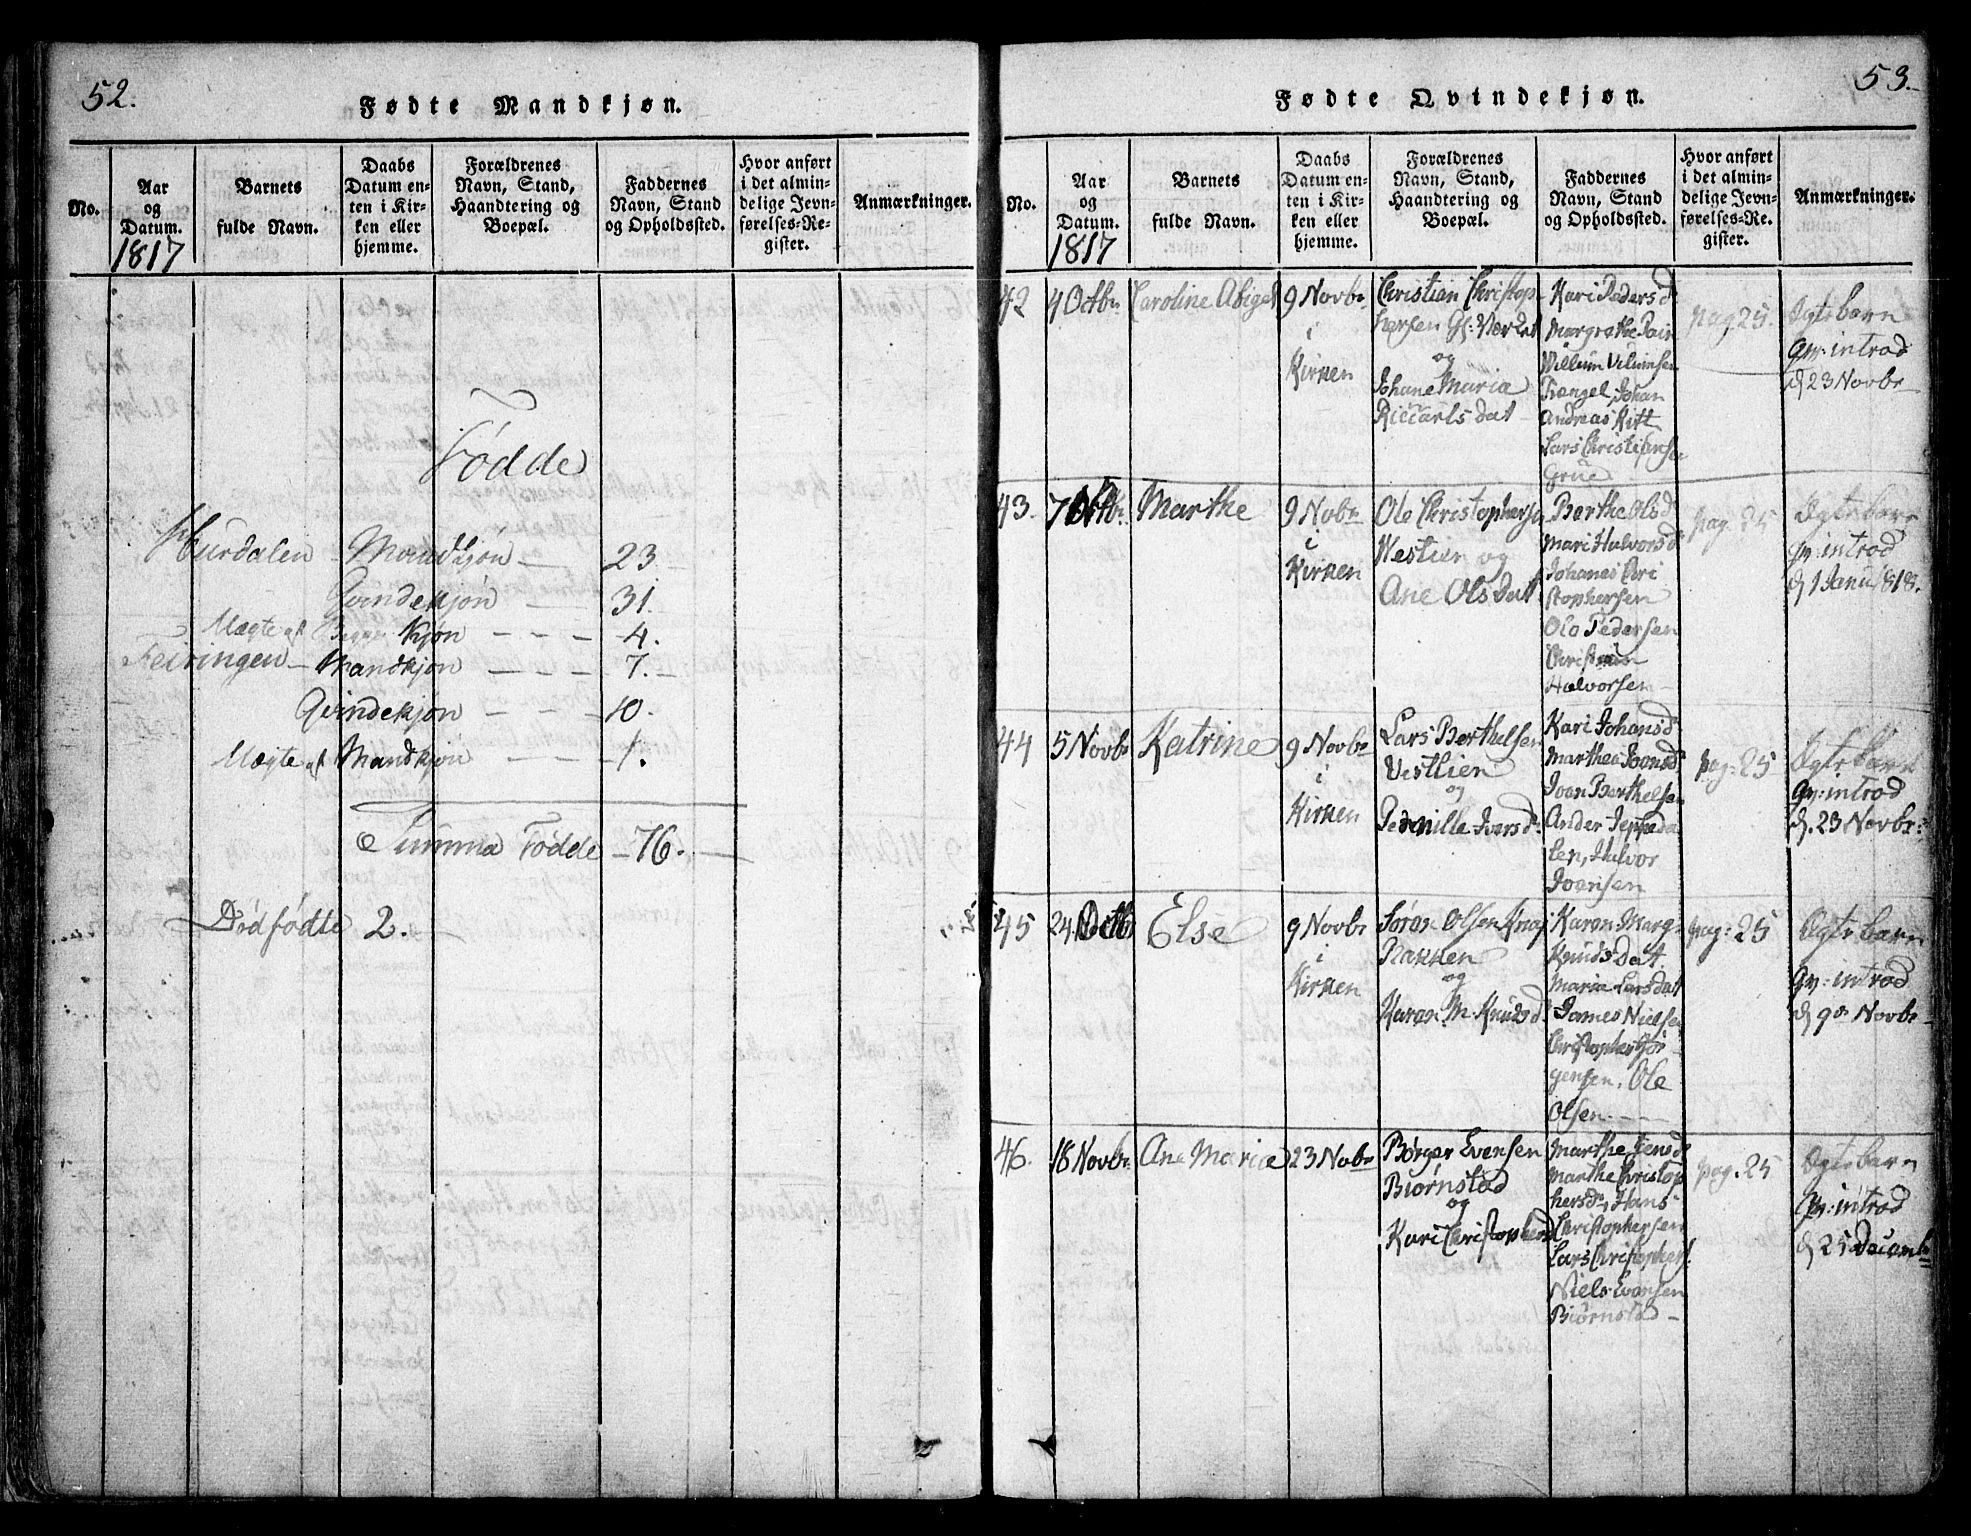 52.
Fødte Mandkjøn.
No.
Aar
og
Datum.
1817
Barnets
fulde Navn.
Daabs
Datum en-
ten i Kir-
ken eller
hjemme.
Forældrenes
Navn, Stand,
Haandtering og
Boepæl.
Faddernes
Navn, Stand
og Opholdssted.
Hvor anført
i det almin-
delige Jevn-
førelses-Re-
gister.
Anmærkninger.
Fødde
Hurdalen Mandkjøn — 23
Qvindekjøn — 31.
Uægte af Begge Kjøn - - - 4.
Feiringen — Mandkjøn - - - 7.
Qvindekjøn - - 10.
Uægte af Mandkjøn - - - 1.
Summa Fødde — 76.
Dødfødte 2.
53.
Fødte Qvindekjøn.
No.
Aar
og
Datum.
1817
Barnets
fulde Navn.
Daabs
Datum en-
ten i Kir-
ken eller
hjemme.
Forældrenes
Navn, Stand,
Haandtering og
Boepæl.
Faddernes
Navn, Stand
og Opholdssted.
Hvor anført
i det almin-
delige Jevn-
førelses-Re-
gister.
Anmærkninger.
42
4 Octbr
Caroline Abigel
9 Novbr
i
Kirken
Christian Christop
hersen
og
Johane Maria
Riccarls Dat
Kari Peders D
Margrethe
Willum Vilumsen
Trengel, Johan
Andreas Kitt
Lars Christiansen
Grue
pag 25.
Ægte barn
introd
d 23 Novbr
43.
7
Marthe
9 Nobr
i
Kirken
Ole Christophersen
Westlien og
Ane Ols Dat
Berthe Ols D
Mari Halvors D
Johanes Chri
stophersen
Ole Pedersen
Christian
Halvorsen
pag. 25
Ægte barn
introd
d 1 Janu 1818.
44
5 Novbr
Katrine
9 Novbr
i
Kirken
Lars Berthelsen
Vestlien
og
Pernille Ivers D
Kari Johans D
Marthea Joens D
Joen Berthelsen
Ander Jeppeda
len, Halvor
Joensen
pag: 25
Ægte barn
introd
d. 23 Novbr:
45
24 Octb
Else
9 Novbr
i
Kirken
Søren Olsen Knap
Rakken
og
Karen M. Knuds D
Karen Marg:
Knuds Dat.
Maria Lars Dat
James Nielsen
Christopher Jør-
gensen, Ole
Olsen.
pag: 25
Ægte barn
introd
d 9de Novbr
46.
18 Novbr.
Ane Maria
23 Nobr
Børger Evensen
Biørnstad
og
Kari Christophersd
Marthe Jens D
Marthe Christop
hersd, Hans
Christophersen
Lars Christophers.
Niels Evensen
Biørnstad
pag. 25
Ægte barn
introd
d 25 Decemb